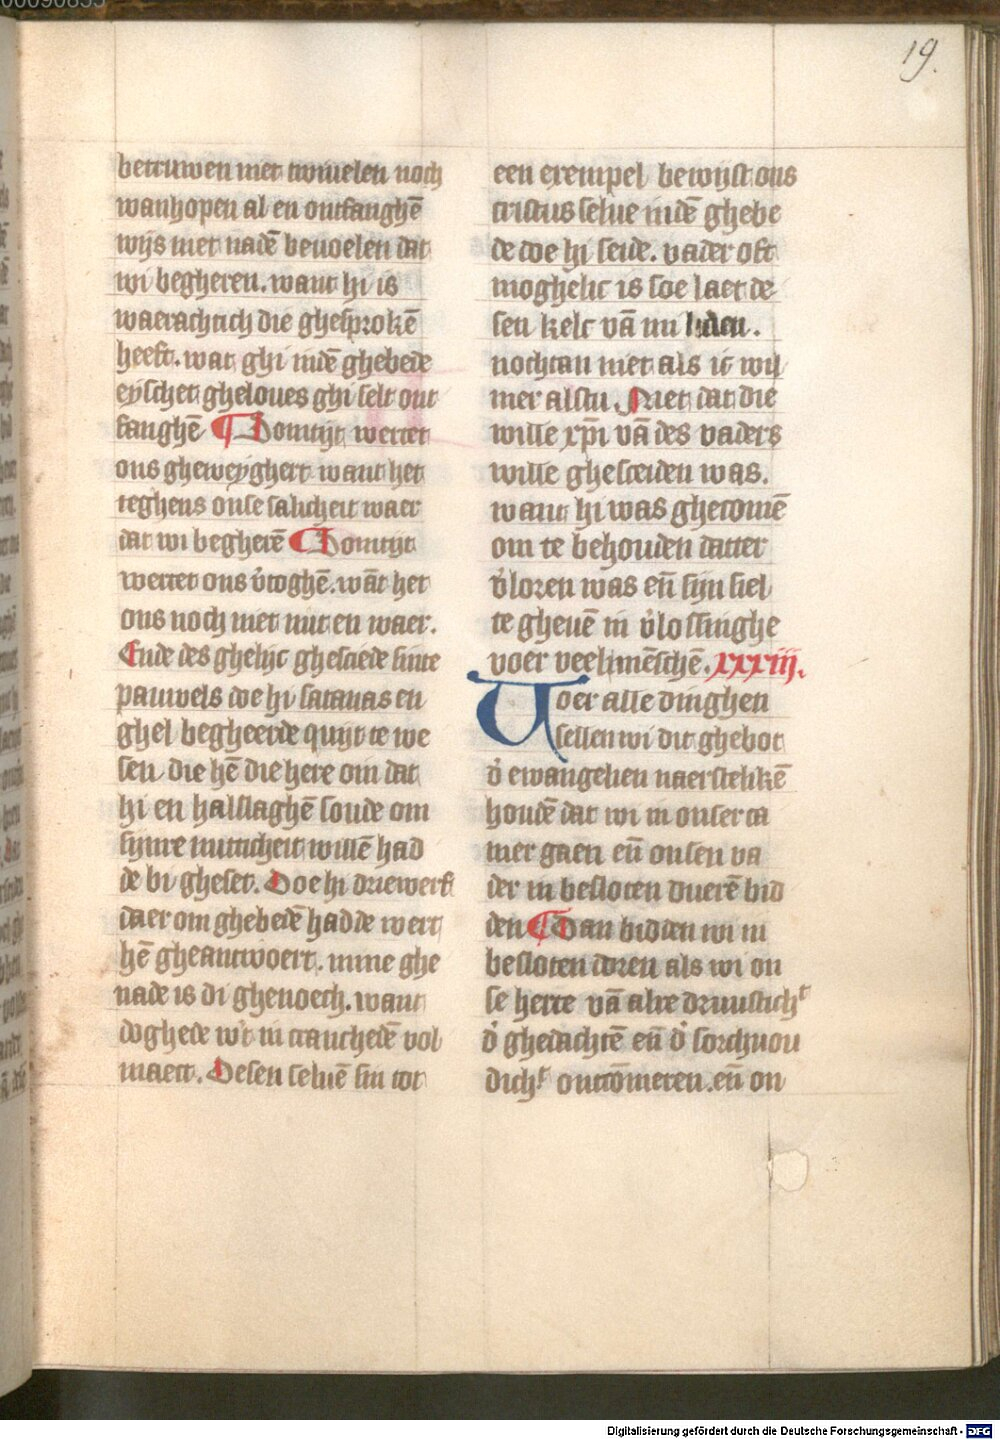 19.
betruwen niet twiuelen noch
wanhopen al en ontfanghē
wijs niet nadē beuoelen dat
wi begheren. want hi is
waerachtich die ghesprokē
heeft. wat ghi indē ghebede
eyschet gheloues ghi selt ont
fanghē ¶ Somtijt wertet
ons gheweyghert want het
teghens onse salicheit waer
dat wi begherē ¶ Somtijt
wertet ons v̓toghē. wāt het
ons noch niet nut en waer.
Ende des ghelijc ghesciede sinte
pauwels doe hi satanas en
ghel begheerde quijt te we
sen die hē die here om dat
hi en halslaghē soude om
sijnre nutticheit willē had
de bi gheset. Doe hi driewerf
daer om ghebedē hadde wert
hē gheantwoert. mine ghe
nade is di ghenoech. want
doghede wt in cranchedē vol
maect. Desen seluē sin tot
een exempel bewijst ons
cristus selue indē ghebe
de doe hi seide. vader oft
moghelic is soe laet de
sen kelc vā mi liden.
nochtan niet als ic wil
mer alstu. Niet dat die
wille xp̄i vā des vaders
wille ghesceiden was.
want hi was ghecomē
om te behouden datter
v̓loren was en̄ sijn siel
te gheuē in v̓lossinghe
voer veel mēschē. xxxiij.
Uoer alle dinghen
sellen wi dit ghebot
d̓ ewangelien naerstelikē
houdē dat wi in onser ca
mer gaen en̄ onsen va
der in besloten duerē bid
den ¶ Dan bidden wi in
besloten doren als wi on
se herte vā alre druustichᵗ
d̓ ghedachtē en̄ d̓ sorchuou
dichᵗ ontcōmeren. en̄ on
Digitalisierung gefördert durch die Deutsche Forschungsgemeinschaft - DFG